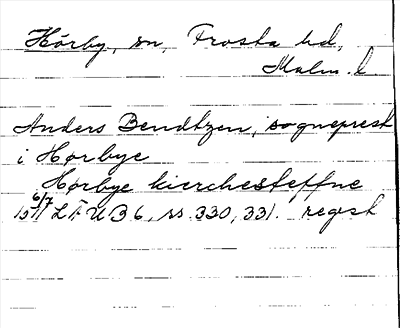 Hörby, sn, Frosta hd,
Malm. l.
Anders Bendtzen, sogneprest
i Hørbye
Hørbye kirchesteffne
6/7
15 LÄUB 6, ss. 330, 331. regist